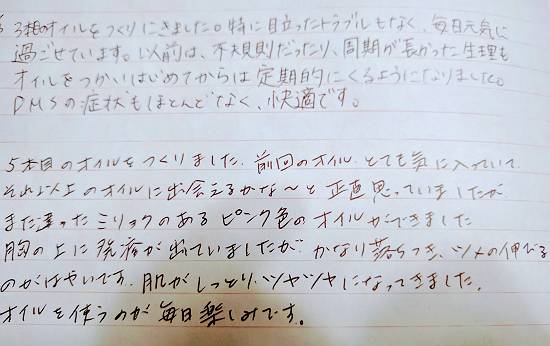 3本目のオイルをつくりにきました。特に目立ったトラブルもなく、毎日元気に
過ごせています。以前は、不規則だったり、周期が長かった生理も
オイルをつかいはじめてからは定期的にくるようになりました。
PMSの症状もほとんどなく、快適です。
5本目のオイルをつくりました。前回のオイル、とても気に入っていて
それ以上のオイルに出会えるかな〜と正直思っていましたが
また違ったミリョクのあるピンク色のオイルができました
胸の上に発疹が出ていましたが、かなり落ちつき、ツメの伸びる
のがはやいです。肌がしっとり、ツヤツヤになってきました。
オイルを使うのが毎日楽しみです。